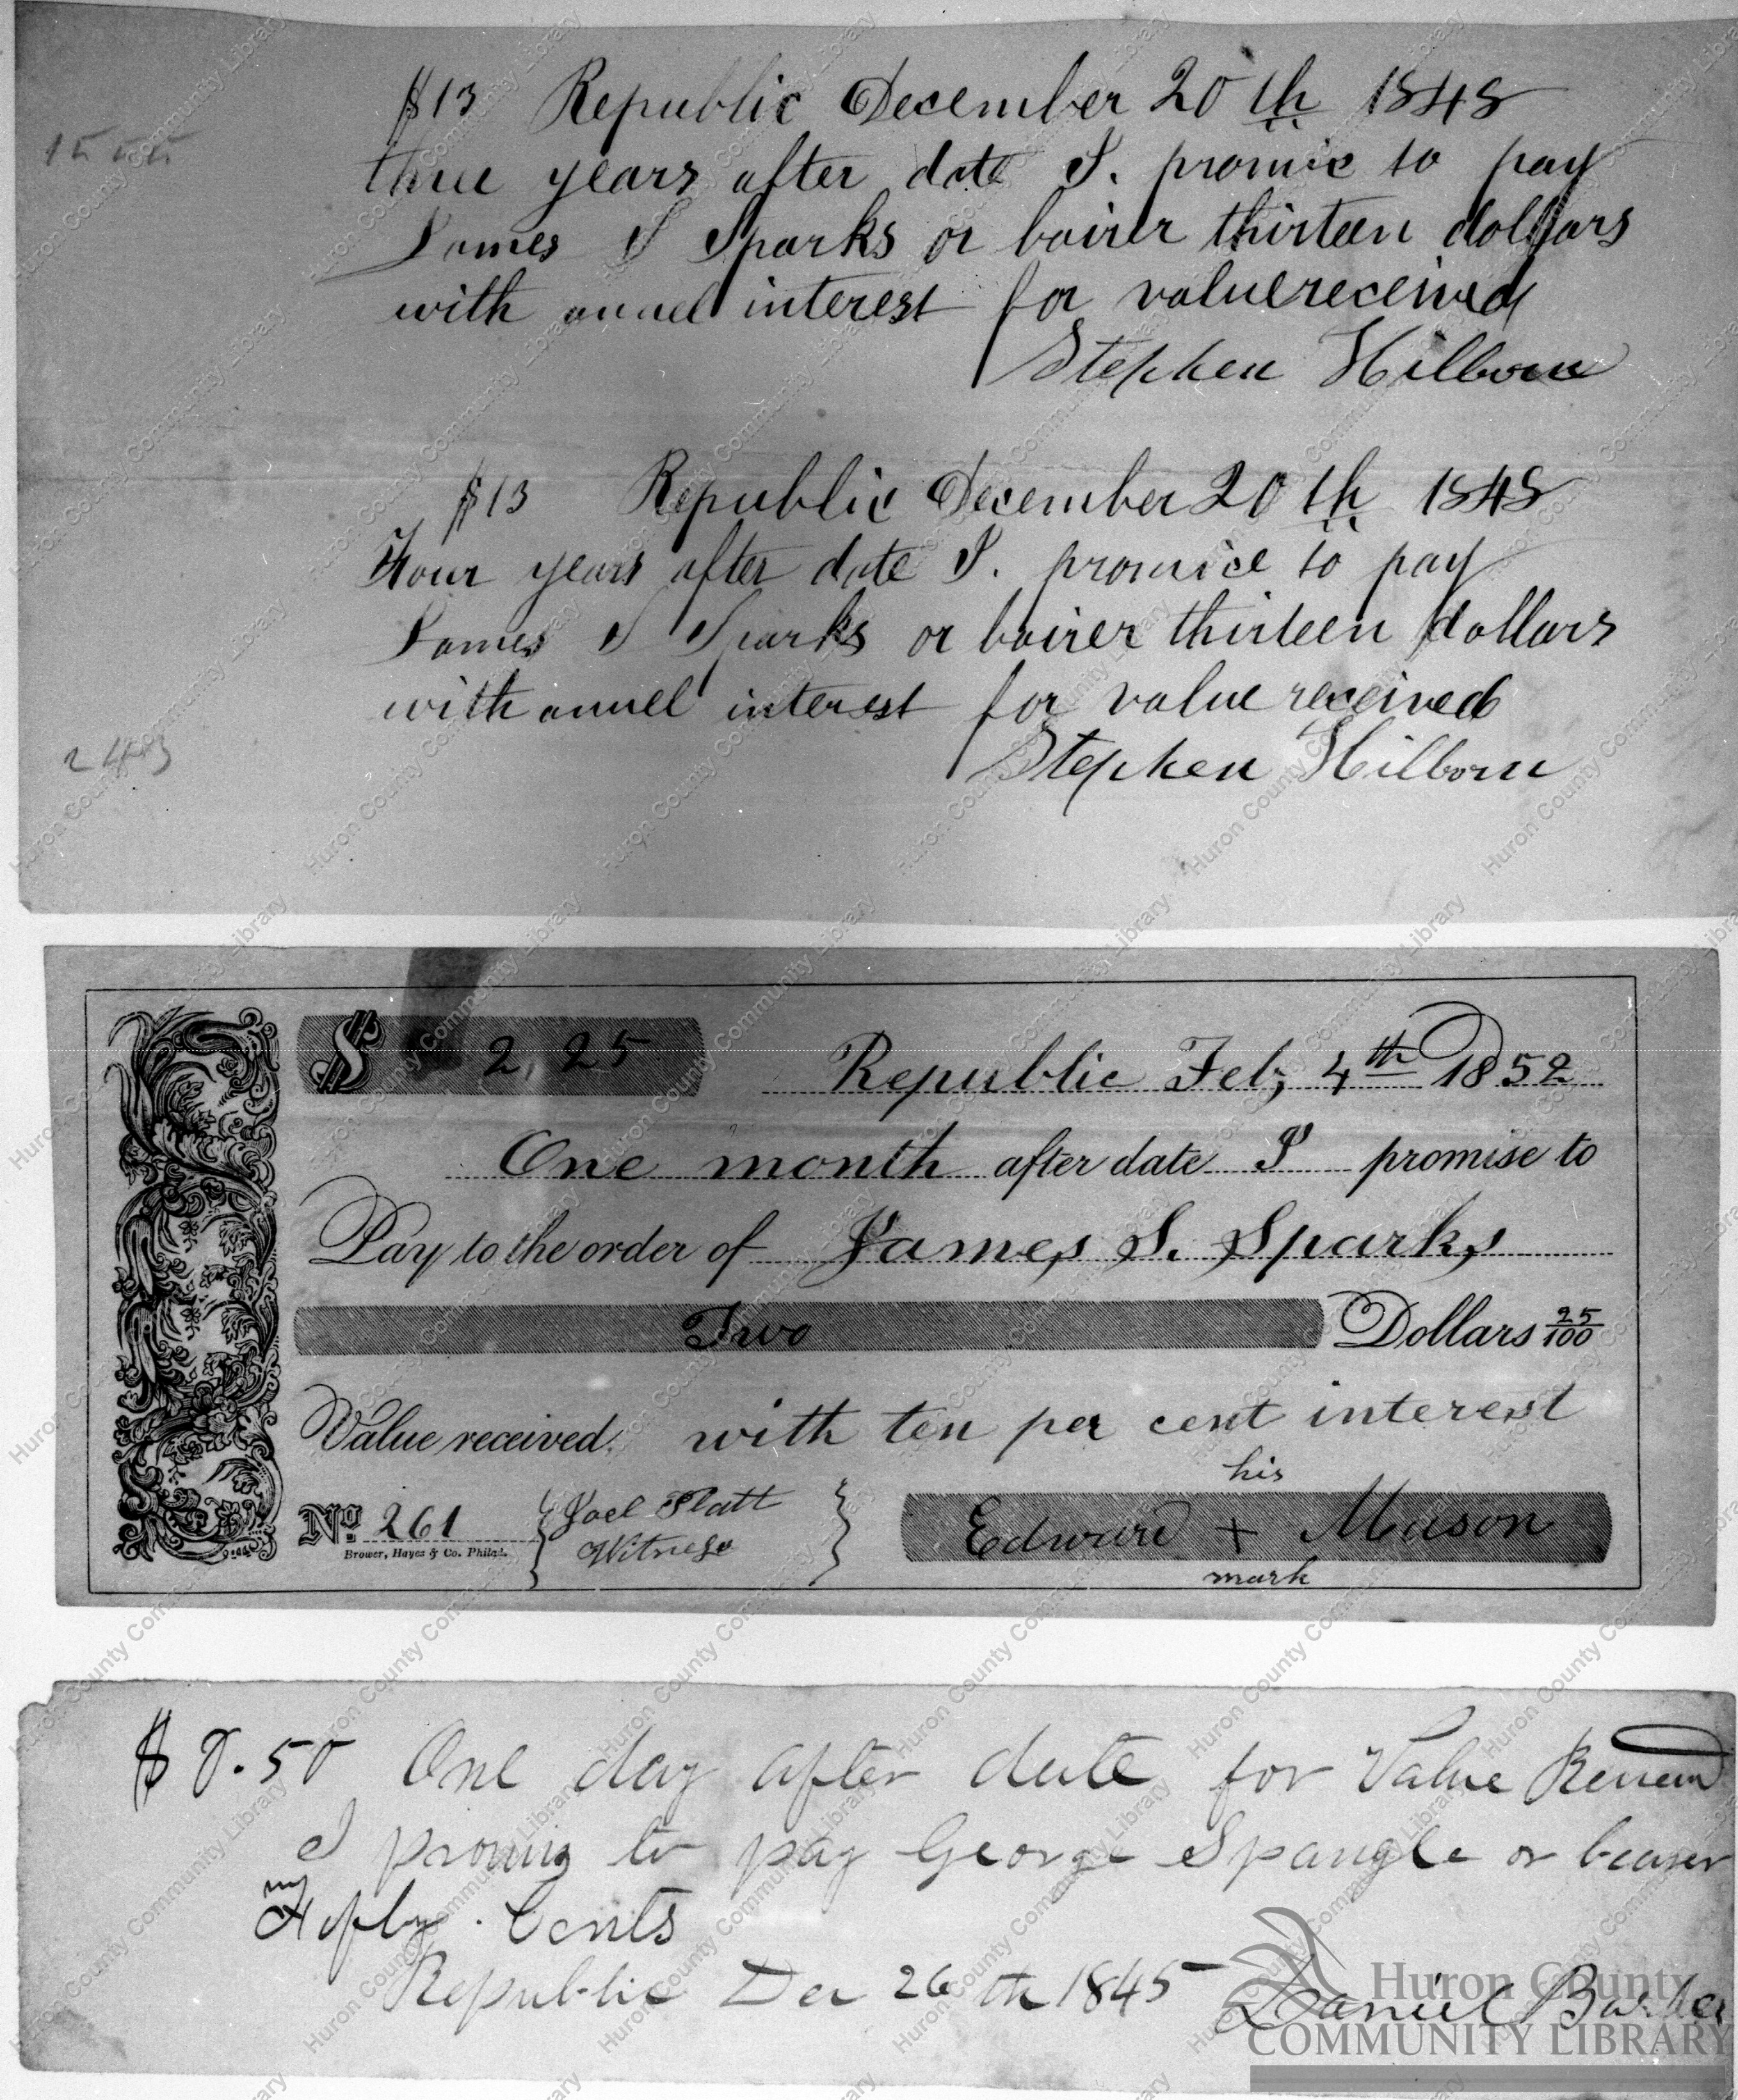 $13 Republic December 20th 1848
three years after date I. promic to pay
James S Sparks or bairer thirteen dollars
with annuel interest for value received
Stephen Hilborn
$13 Republic December 20th 1848
Four years after date I. promice to pay
James S Sparks or bairer thirteen dollars
with annuel interest for value received
Stephen Hilborn
2 483
$ 2,25 Republic Feb; 4th 1852
One month after date I promise to
Pay to the order of James S. Sparks
Two Dollars 25/100
Value received. with ten per cent interest
his
No. 261 Joel Platt Edward + Mason
Witness
Brower, Hayes & Co. Philad.
mark
$ 0.50 One day after date for Value
I to pay George Spangle or bearer
my
Fifty Cents
Republic Dec 26th 1845 Daniel Barker
Huron County
COMMUNITY LIBRARY